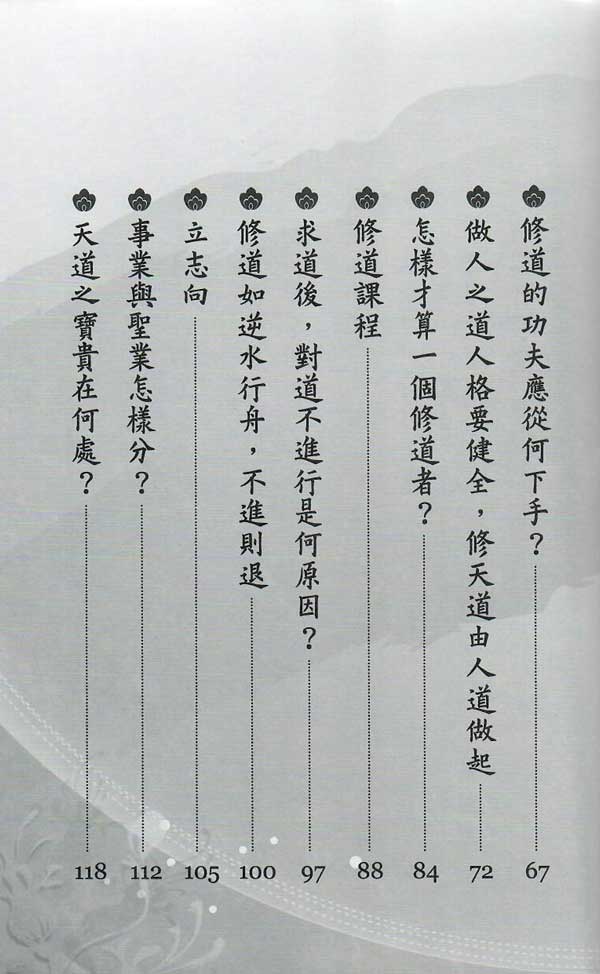 修道的功夫應從何下手？67
做人之道人格要健全，修天道由人道做起72
怎樣才算一個修道者？84
修道課程88
求道後，對道不進行是何原因？97
修道如逆水行舟，不進則退100
立志向105
事業與聖業怎樣分？112
天道之寶貴在何處？118